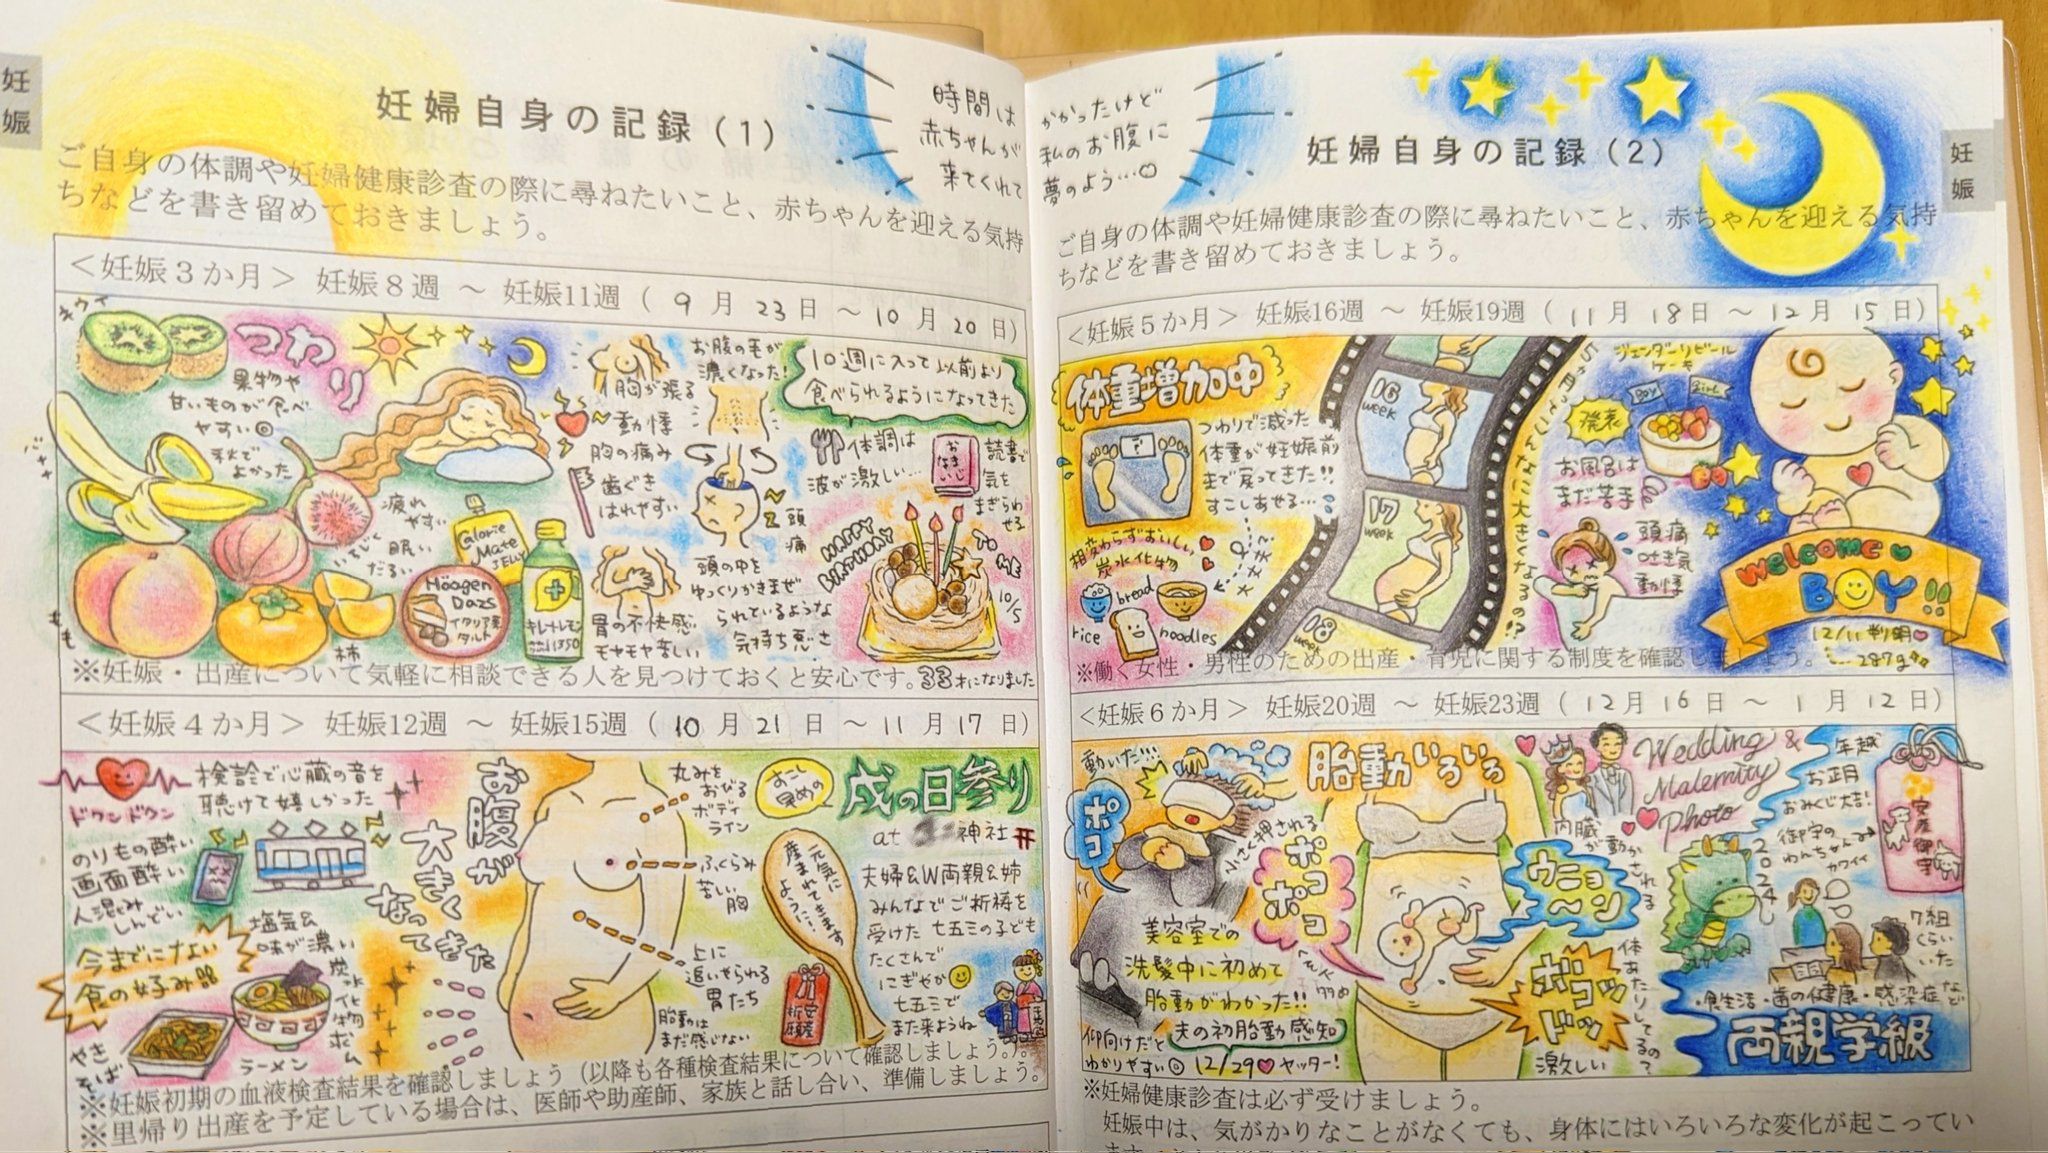 妊娠
妊婦自身の記録（1）
時間は
赤ちゃんが
来てくれて
ご自身の体調や妊婦健康診査の際に尋ねたいこと、赤ちゃんを迎える気持
ちなどを書き留めておきましょう。
＜妊娠３か月＞ 妊娠８週 ～ 妊娠11週（ 9 月 23 日 ～ 10 月 20 日）
キウイ
つわり
果物や
甘いものが食べ
やすい◎
秋で
よかった
いちじく
もも
柿
疲れ
やすい
眠い
だるい
Calorie
Mate
JELLY
Häagen
Dazs
イタリア栗
タルト
キレートレモン
1350
胸が張る
動悸
胸の痛み
歯ぐき
はれやすい
胃の不快感
モヤモヤ苦しい
お腹の毛が
濃くなった!
頭痛
頭の中を
ゆっくりかきまぜ
られているような
気持ち悪さ
10週に入って以前より
食べられるようになってきた
体調は
波が激しい…
読書で
気を
まぎらわ
せる
HAPPY
BIRTHDAY
TO ME
10/5
33才になりました
※妊娠・出産について気軽に相談できる人を見つけておくと安心です。
＜妊娠４か月＞ 妊娠12週 ～ 妊娠15週（ 10 月 21 日 ～ 11 月 17 日）
ドクンドクン
検診で心臓の音を
聴けて嬉しかった
のりもの酔い
画面酔い
人混みしんどい
今までにない
食の好み
塩気&
味が濃い
炭水化物
ホーム
やき
そば
ラーメン
お腹が
大きく
なってきた
丸みを
おびる
ボディ
ライン
ふくらみ
苦しい
胸
上に
追いやられる
胃たち
胎動は
まだ感じない
すこし
早めの
戌の日参り
at
神社
元気に
産まれてきますよう
安産
祈願
夫婦&W両親&姉
みんなでご祈祷を
受けた 七五三の子ども
たくさんで
にぎやか
七五三で
また来ようね
※妊娠初期の血液検査結果を確認しましょう（以降も各種検査結果について確認しましょう。）。
※里帰り出産を予定している場合は、医師や助産師、家族と話し合い、準備しましょう。
妊娠
かかったけど
私のお腹に
夢のよう…♡
妊婦自身の記録（2）
ご自身の体調や妊婦健康診査の際に尋ねたいこと、赤ちゃんを迎える気持
ちなどを書き留めておきましょう。
＜妊娠５か月＞ 妊娠16週 ～ 妊娠19週（ 11 月 18 日 ～ 12 月 15 日）
体重増加中
?
つわりで減った
体重が妊娠前
まで戻ってきた!!
すこしあせる…
相変わらずおいしい
炭水化物
rice
bread
noodles
16
week
17
week
18
week
ジェンダーリビール
ケーキ
BOY
girl
発表
お風呂は
まだ苦手
頭痛
吐き気
動悸
welcome♥
BOY!!
12/11 判明♡
…287g
※働く女性・男性のための出産・育児に関する制度を確認しましょう。
＜妊娠６か月＞ 妊娠20週 ～ 妊娠23週（ 12 月 16 日 ～ 1 月 12 日）
動いた!!!
ポコ
美容室での
洗髪中に初めて
胎動がわかった!!
仰向けだと
わかりやすい◎
夫の初胎動感知
12/29♡ヤッター!
胎動いろいろ
小さく押される
ポコ
ポコ
内臓
が動かされる
ウニョ
ーン
ボコッ
ドッ
体あたりしてるので
激しい
Wedding &
Maternity
Photo
年越
お正月
おみくじ大吉!
御守の
わんちゃん
カワイイ
安産御守
2024
7組
くらい
いた
・食生活・歯の健康・感染症など
両親学級
※妊婦健康診査は必ず受けましょう。
妊娠中は、気がかりなことがなくても、身体にはいろいろな変化が起こってい